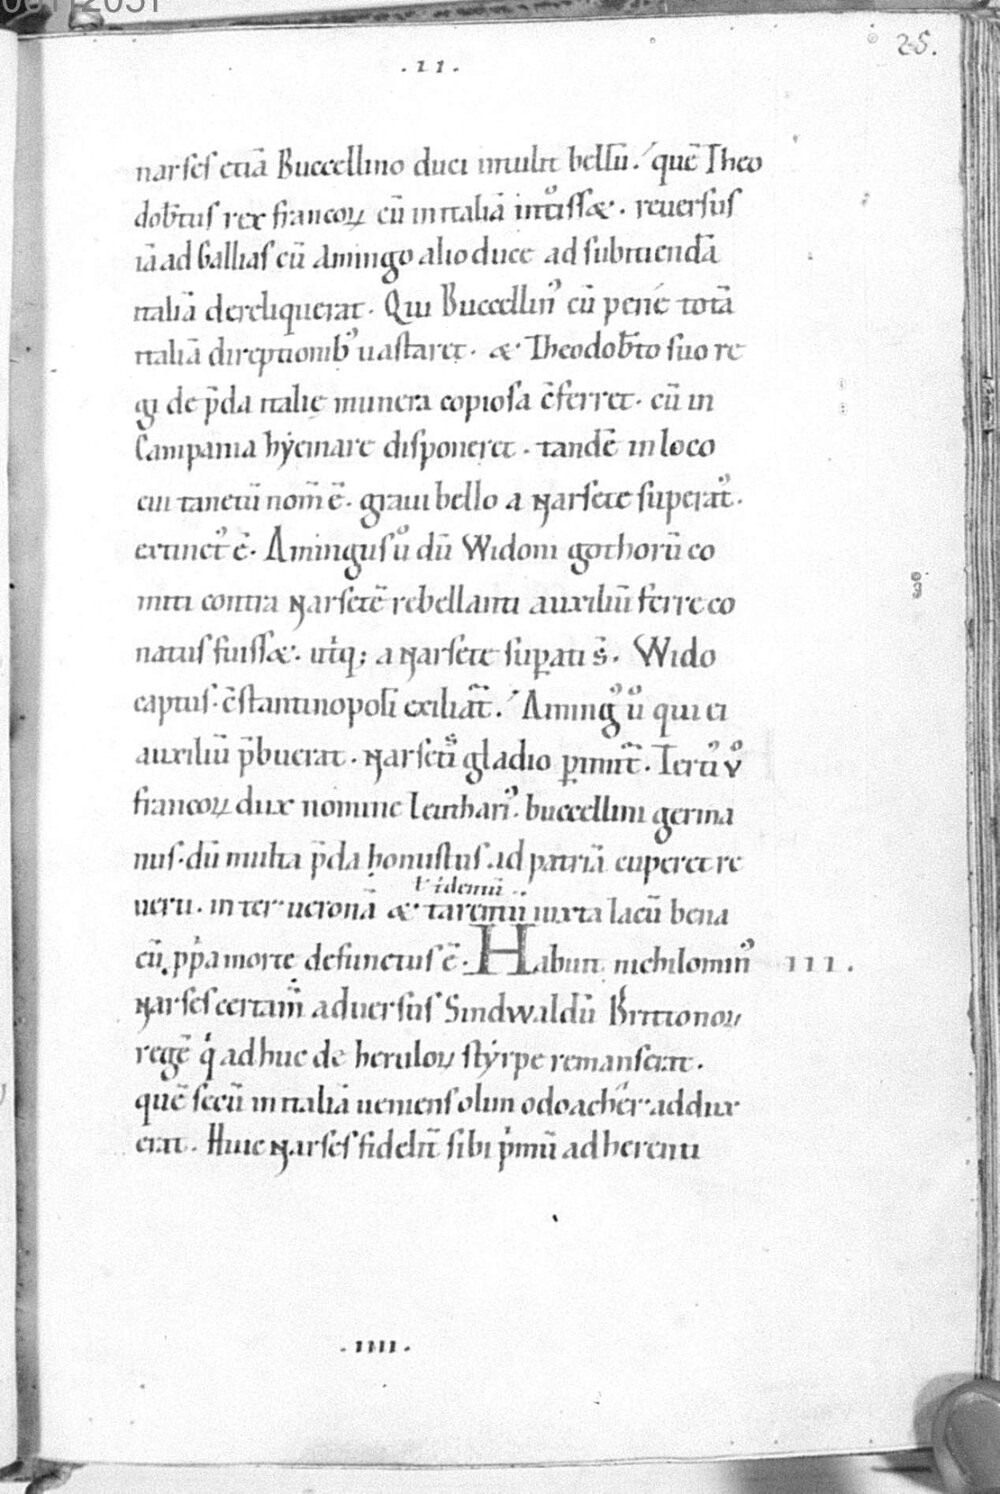 25.
.II.
narses etiā Buccellino duci intulit bellū. quē Theo
dob̄tus rex francoꝝ cū in italiā introisset. reversus
iā ad Gallias cū Amingo alio duce ad subruendā
italiā dereliquerat. Qui Buccellin᾽ cū pene totā
italiā direptionib᾽ vastaret. & Theodob̄to suo re
gi de p̄da italię munera copiosa c̄ferret. cū in
Campania hẏemare disponeret. tandē in loco
cui tanetū nom̄ ē. gravi bello a Narsete superat᾽.
extinct᾽ ē. Amingus ů dū Widoni gothorū co
miti contra Narsetē rebellanti auxiliū ferre co
natus fuisset. utiq; a Narsete suꝑati s̄. Wido
captus. c̄stantinopoli exiliat᷑. Aming᾽ ů qui ei
auxiliū p̄buerat. Narsetis gladio ꝑimit᷑. Terti᾽ v̊
francoꝝ dux nomine Leuthari᾽. buccellini germa
nus. dū multa p̄da honustus. ad patriā cuperet re
t̵ identū
verti. inter veronā & tarentū iuxta lacū bena
cū. ꝓpa morte defunctus ē. Habuit nichilomin᾽ III.
Narses certam̄ adversus Sindwaldū Brittonoꝝ
regē qͥ ad huc de heruloꝝ stẏrpe remanserat.
quē secū in italiā veniens olim odoacher addux
erat. Huic Narses fidelit̄ sibi pͥmū adherenti
.IIII.